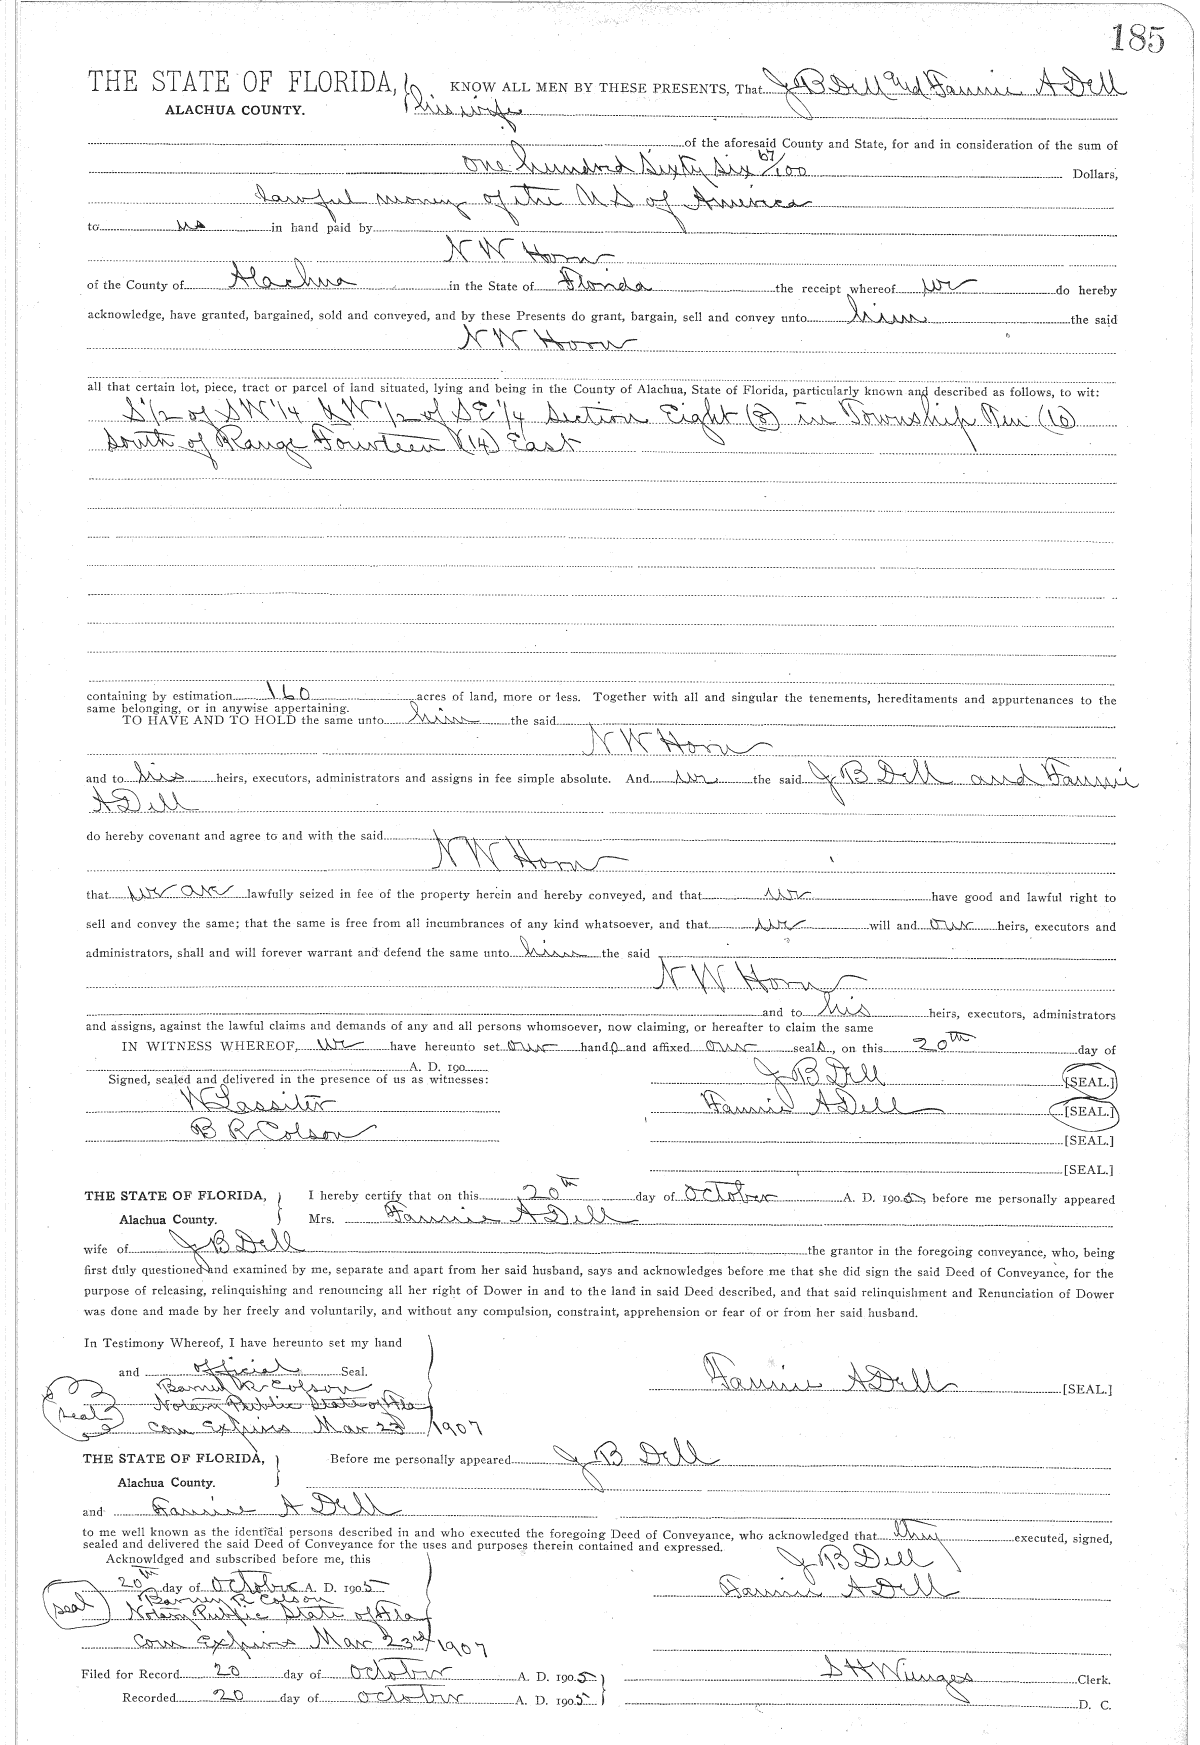 185
THE STATE OF FLORIDA, } KNOW ALL MEN BY THESE PRESENTS, That J B Dell and Fannie A Dell
ALACHUA COUNTY. his wife
of the aforesaid County and State, for and in consideration of the sum of
One hundred Sixty Six 67/100 Dollars,
Lawful money of the U S of America
to us in hand paid by
N W Horn
of the County of Alachua in the State of Florida the receipt whereof we do hereby
acknowledge, have granted, bargained, sold and conveyed, and by these Presents do grant, bargain, sell and convey unto him the said
N W Horn
all that certain lot, piece, tract or parcel of land situated, lying and being in the County of Alachua, State of Florida, particularly known and described as follows, to wit:
S 1/2 of SW 1/4 & W 1/2 of SE 1/4 Section Eight (8) in Township Ten (10)
South of Range Fourteen (14) East
containing by estimation 160 acres of land, more or less. Together with all and singular the tenements, hereditaments and appurtenances to the
same belonging, or in anywise appertaining.
TO HAVE AND TO HOLD the same unto him the said
N W Horn
and to his heirs, executors, administrators and assigns in fee simple absolute. And we the said J B Dell and Fannie
A Dell
do hereby covenant and agree to and with the said
N W Horn
that we are lawfully seized in fee of the property herein and hereby conveyed, and that we have good and lawful right to
sell and convey the same; that the same is free from all incumbrances of any kind whatsoever, and that we will and our heirs, executors and
administrators, shall and will forever warrant and defend the same unto him the said
N W Horn
and to his heirs, executors, administrators
and assigns, against the lawful claims and demands of any and all persons whomsoever, now claiming, or hereafter to claim the same
IN WITNESS WHEREOF, we have hereunto set our hands and affixed our seals, on this 20th day of
A. D. 190
Signed, sealed and delivered in the presence of us as witnesses: J B Dell [SEAL.]
W Lassiter Fannie A Dell [SEAL.]
B R Colson [SEAL.]
[SEAL.]
THE STATE OF FLORIDA, } I hereby certify that on this 20th day of October A. D. 1905, before me personally appeared
Alachua County. Mrs. Fannie A Dell
wife of J B Dell the grantor in the foregoing conveyance, who, being
first duly questioned and examined by me, separate and apart from her said husband, says and acknowledges before me that she did sign the said Deed of Conveyance, for the
purpose of releasing, relinquishing and renouncing all her right of Dower in and to the land in said Deed described, and that said relinquishment and Renunciation of Dower
was done and made by her freely and voluntarily, and without any compulsion, constraint, apprehension or fear of or from her said husband.
In Testimony Whereof, I have hereunto set my hand
and official Seal. Fannie A Dell [SEAL.]
R Colson
seal Notary Public State of Fla
Com Expires Mar 23 1907
THE STATE OF FLORIDA, } Before me personally appeared J B Dell
Alachua County.
and Fannie A Dell
to me well known as the identical persons described in and who executed the foregoing Deed of Conveyance, who acknowledged that they executed, signed,
sealed and delivered the said Deed of Conveyance for the uses and purposes therein contained and expressed.
Acknowldged and subscribed before me, this J B Dell
20th day of October A. D. 1905 Fannie A Dell
Barney R Colson
seal Notary Public State of Fla
Com Expires Mar 23rd 1907
Filed for Record 20 day of October A. D. 1905 S H Wienges Clerk.
Recorded 20 day of October A. D. 1905 D. C.